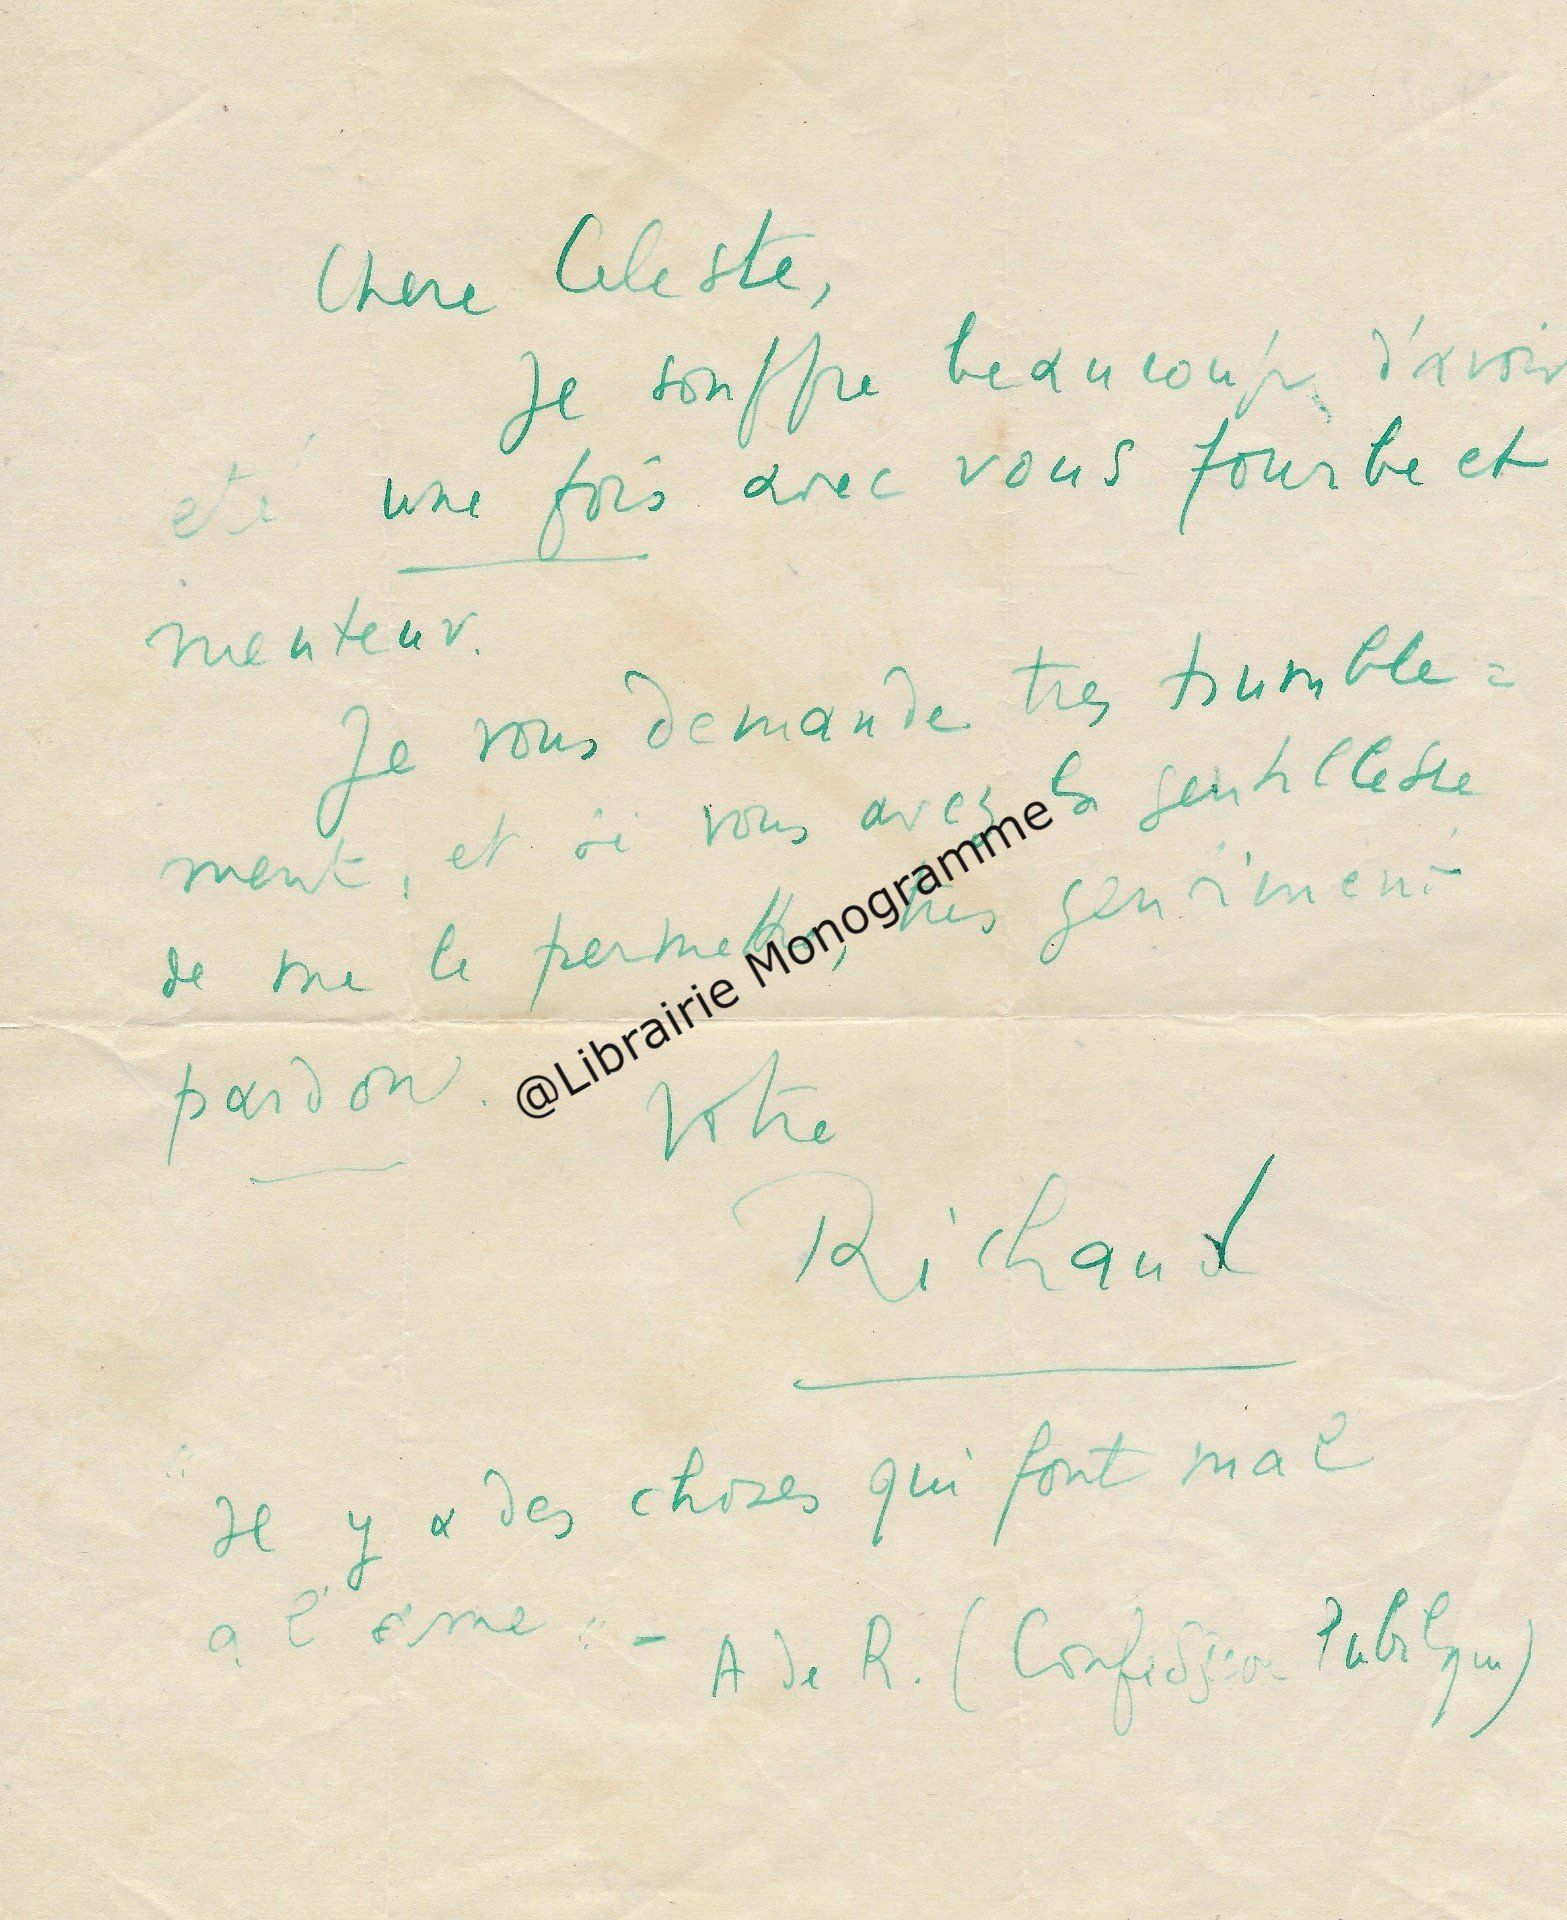 Chere Celeste,
Je souffre beaucoup d'avoir
eté une fois avec vous fourbe et
menteur.
Je vous demande tres humble=
ment, et si vous avez la gentillesse
de me le permettre, tres gentiment
pardon.
@Librairie Monogramme
Votre
Richaud
"Il y a des choses qui font mal
a l'ame" - A de R. (Confession Publique)